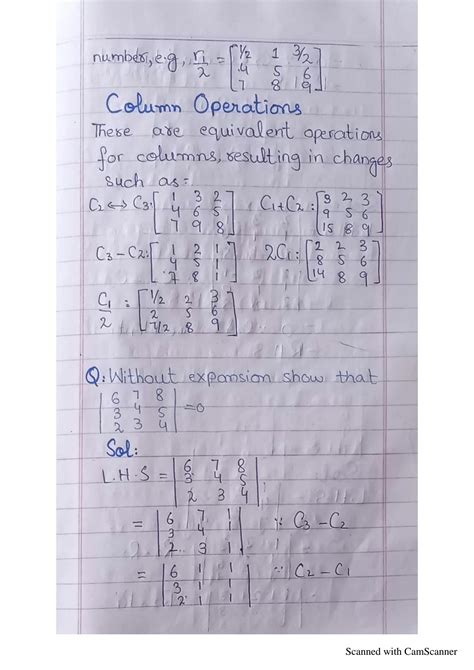 number, e.g, r₁/2 = [1/2 1 3/2
4 5 6
7 8 9]
Column Operations
There are equivalent operations
for columns, resulting in changes
such as:
C₂ ↔ C₃: [1 3 2 C₁+C₂: [3 2 3
4 6 5 9 5 6
7 9 8] 15 8 9]
C₃ – C₂: [1 2 1 2C₁: [2 2 3
4 5 1 8 5 6
7 8 1] 14 8 9]
C₁/2 : [1/2 2 3
2 5 6
7/2 8 9]
Q: Without expansion show that
|6 7 8
3 4 5 | =0
2 3 4|
Sol:
L.H.S = |6 7 8
3 4 5
2 3 4|
= |6 7 1 ∵ C₃ – C₂
3 4 1
2 3 1|
= |6 1 1 ∵ C₂ – C₁
3 1 1
2 1 1|
Scanned with CamScanner